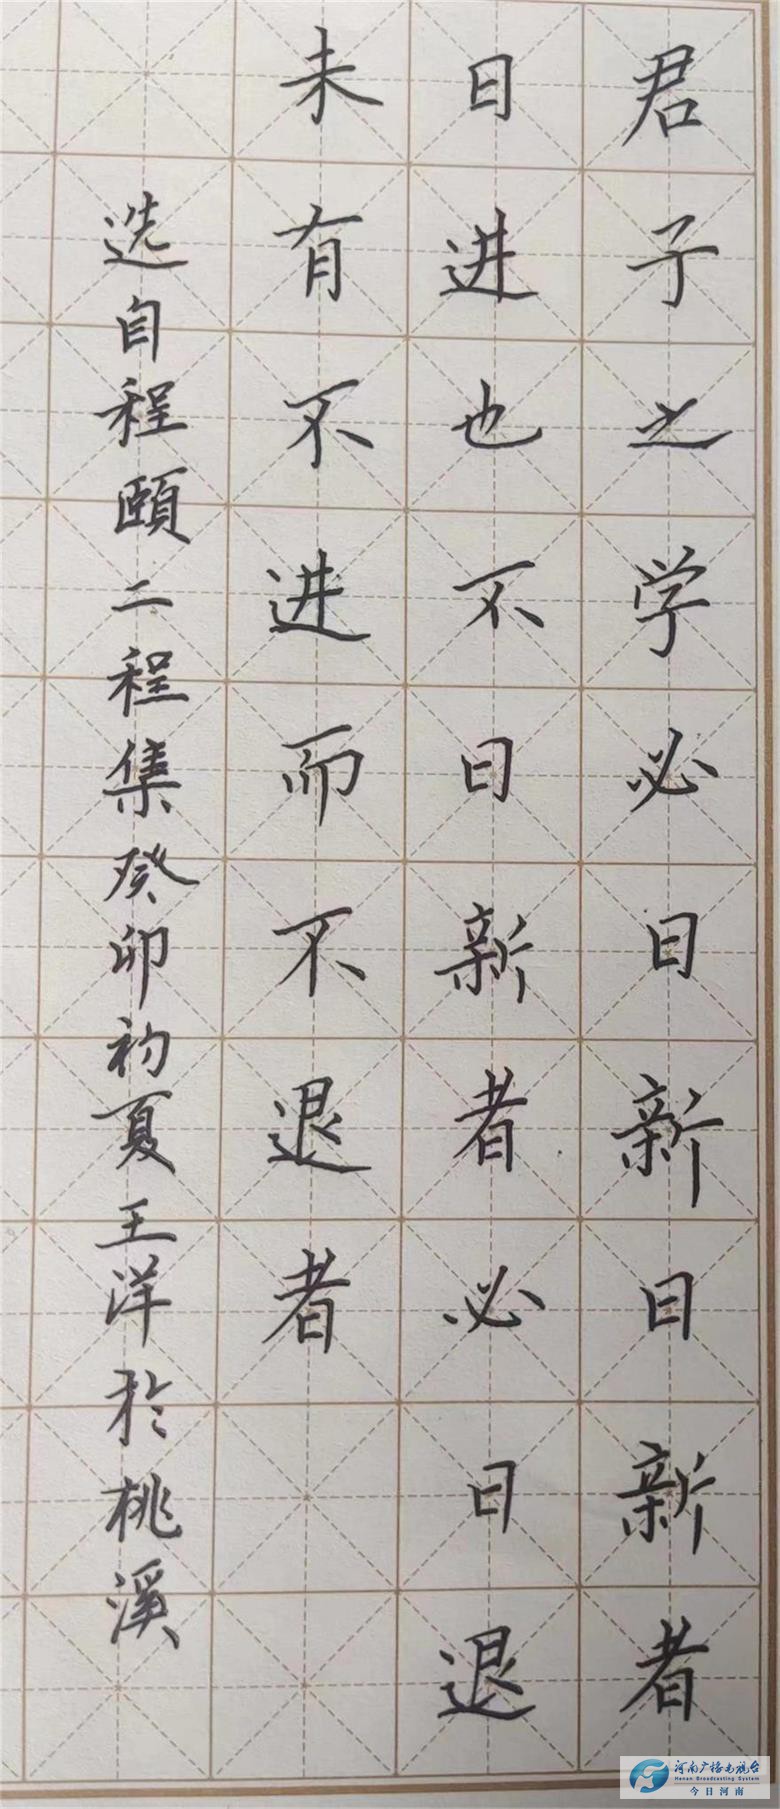 君子之学必日新日新者
日进也不日新者必日退
未有不进而不退者
选自程颐二程集癸卯初夏王洋於桃溪
河南广播电视台
Henan Broadcasting System
今日河南